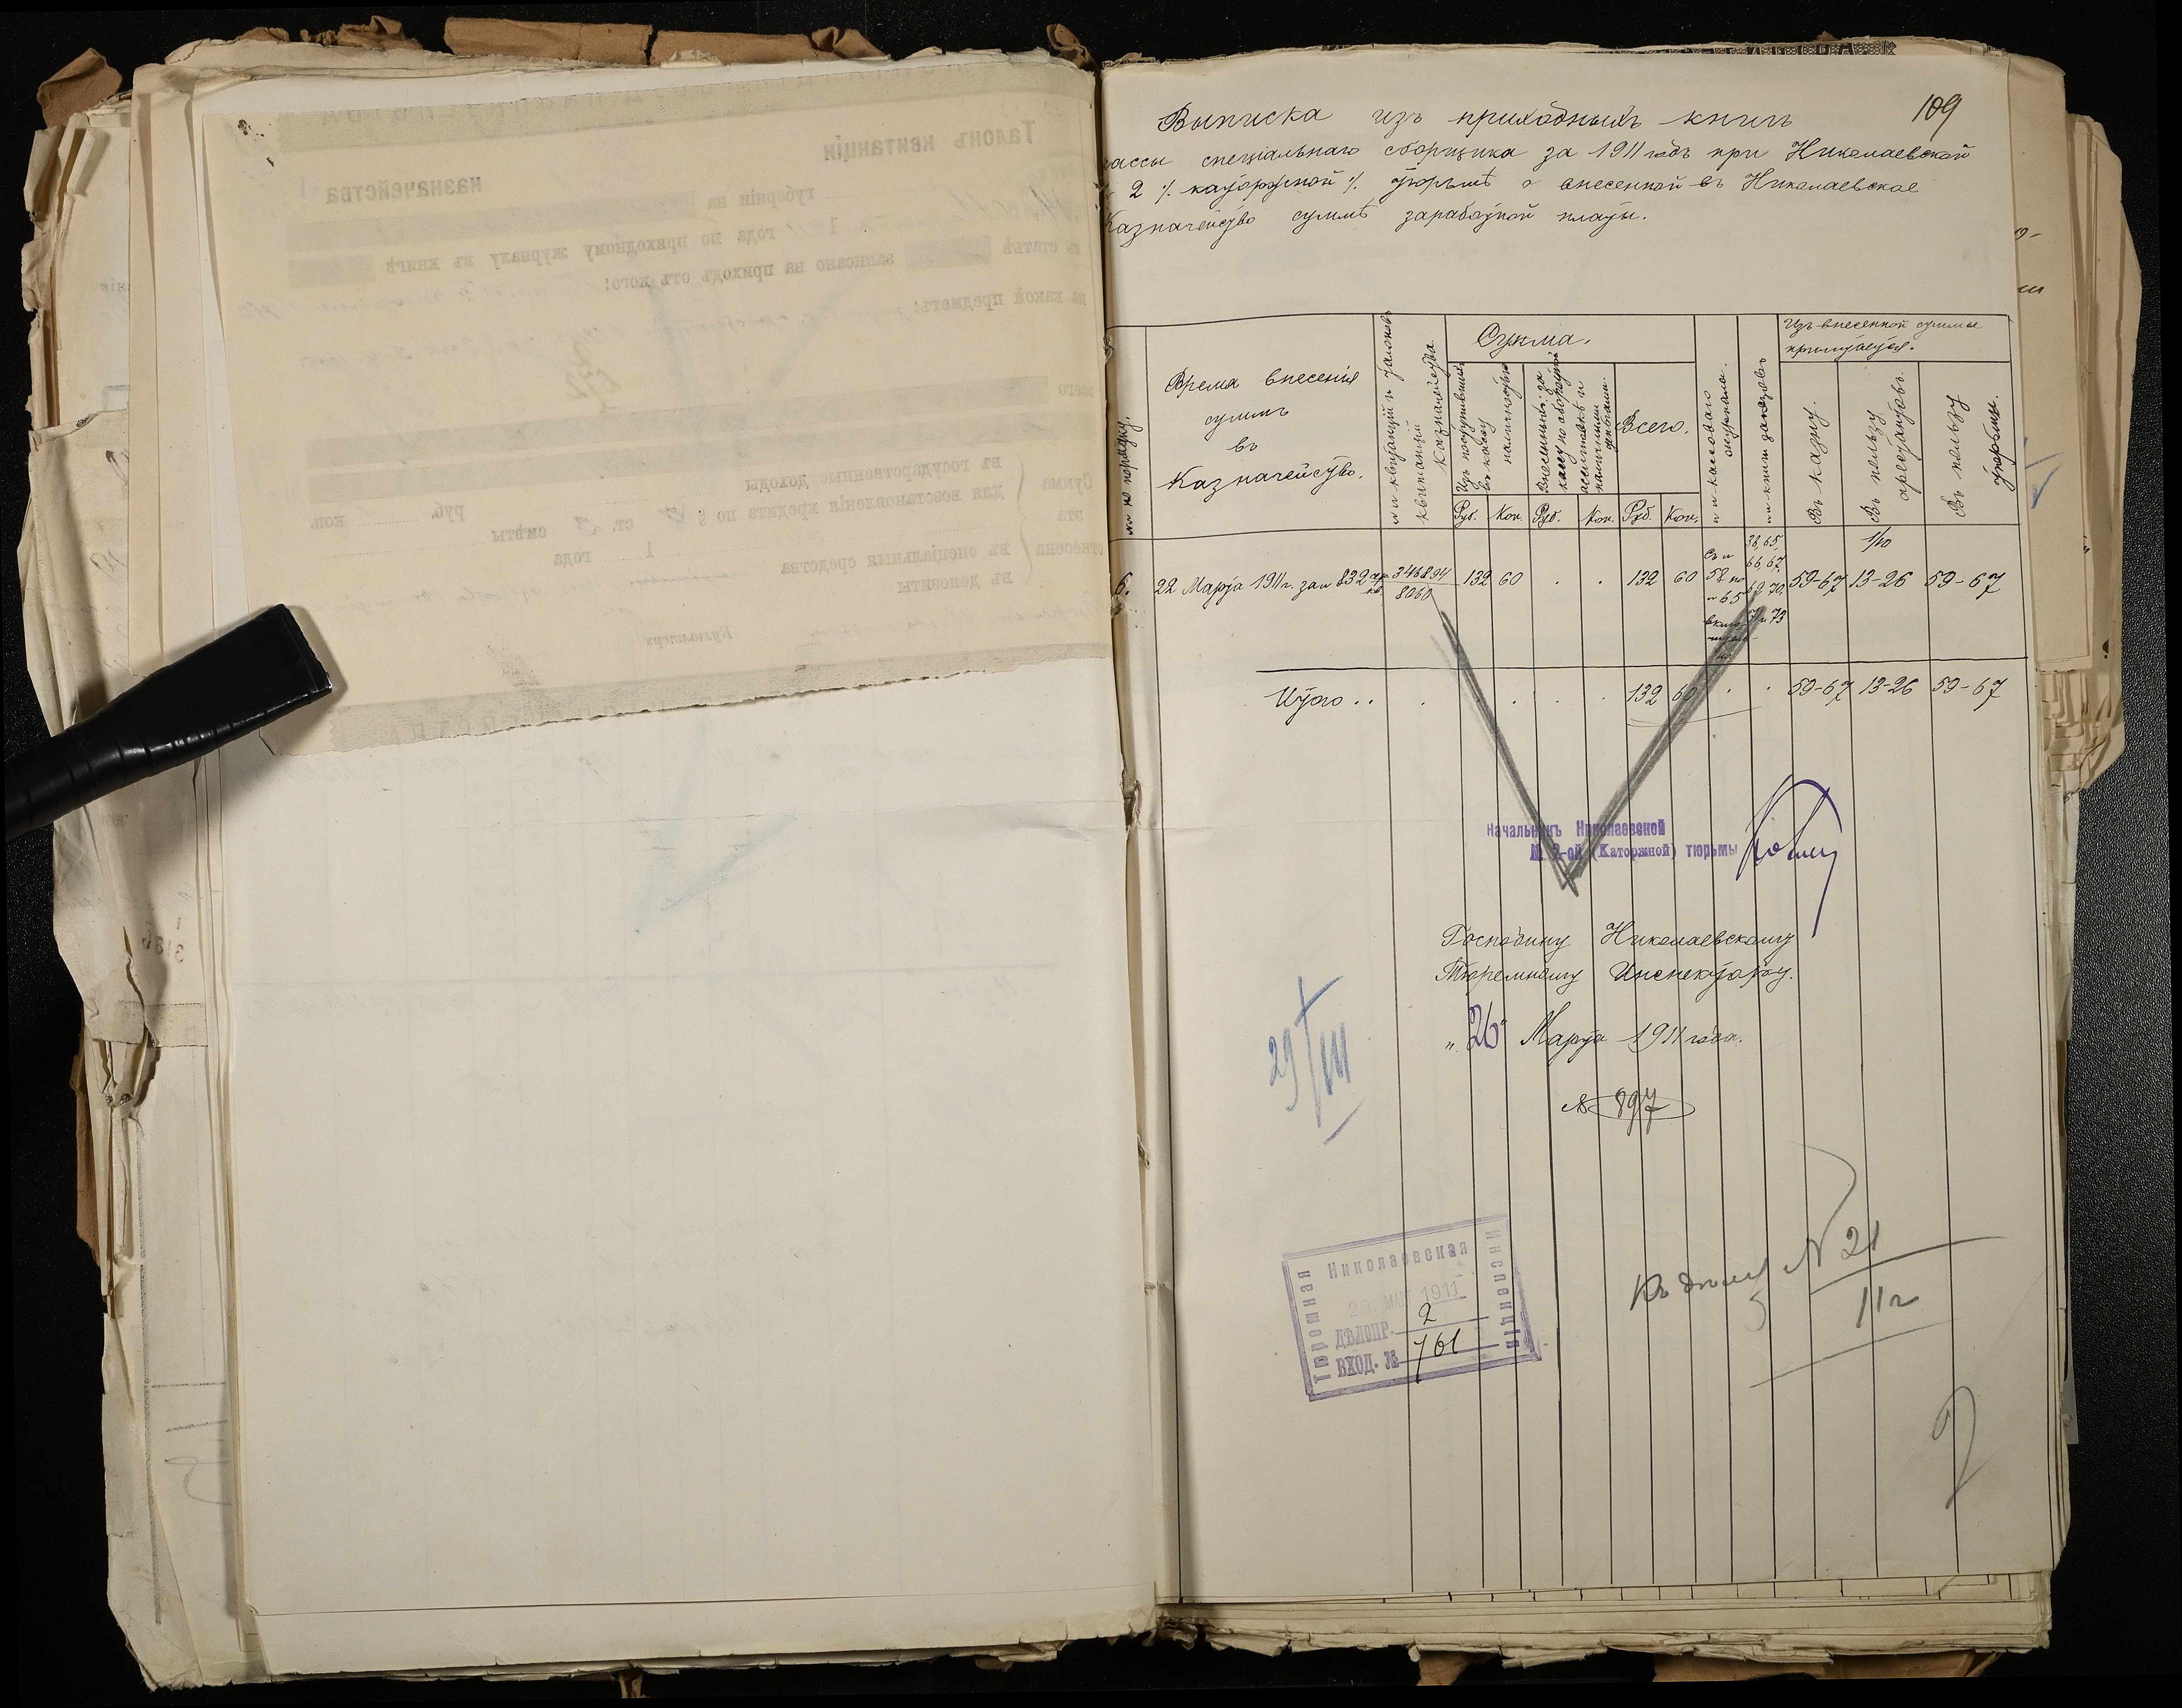 109
Выписка изъ приходныхъ книгъ
кассы спеціальнаго сборщика за 1911 годъ при Николаевской
№ 2 /. каторжной /. тюрьмѣ о внесенной въ Николаевское
Казначейство суммѣ заработной платы.
№№ по порядку.
Время внесенія
суммъ
въ
Казначейство.
№№ квитанцій и талоновъ
квитанцій
Казначейства
Сумма.
Изъ поступившихъ
въ кассу
наличностью
Внесенныхъ за
кассу по оборотной
ассигновкѣ и
наличными
деньгами.
Всего.
Руб. Коп. Руб. Коп. Руб. Коп.
№№ кассоваго
журнала.
№№ книги заказовъ
Изъ внесенной суммы
причитается.
Въ казну.
Въ пользу
арестантовъ.
Въ пользу
тюрьмы.
6. 22 Марта 1911 г. за № 832 346894 / 8060 132 60 . . 132 60 58 по № 65 38, 65, 66, 67, 69, 70, 71 и 73 59-67 1/10 13-26 59-67
Итого .. . . . . . 132 60 . . 59-67 13-26 59-67
Начальникъ Николаевской
№ 2-ой (Каторжной) тюрьмы
Господину Николаевскому
Тюремному Инспектору.
"26" Марта 1911 года.
29/III
№ 897
Николаевская
Тюремная
Инспекція
29 МАР 1911
ДѢЛОПР. 2
ВХОД. № 761
Къ дѣлу № 21
11 г
Талонъ квитанціи
казначейства
губерніи на
1911 года по приходному журналу въ книгѣ
въ статьѣ записано на приходъ отъ кого:
на какой предметъ:
всего
Сумма эта отнесена
въ государственные доходы
для возстановленія кредита по § ст. смѣты
руб. коп.
въ спеціальныя средства 1 года
въ депозиты
Бухгалтеръ